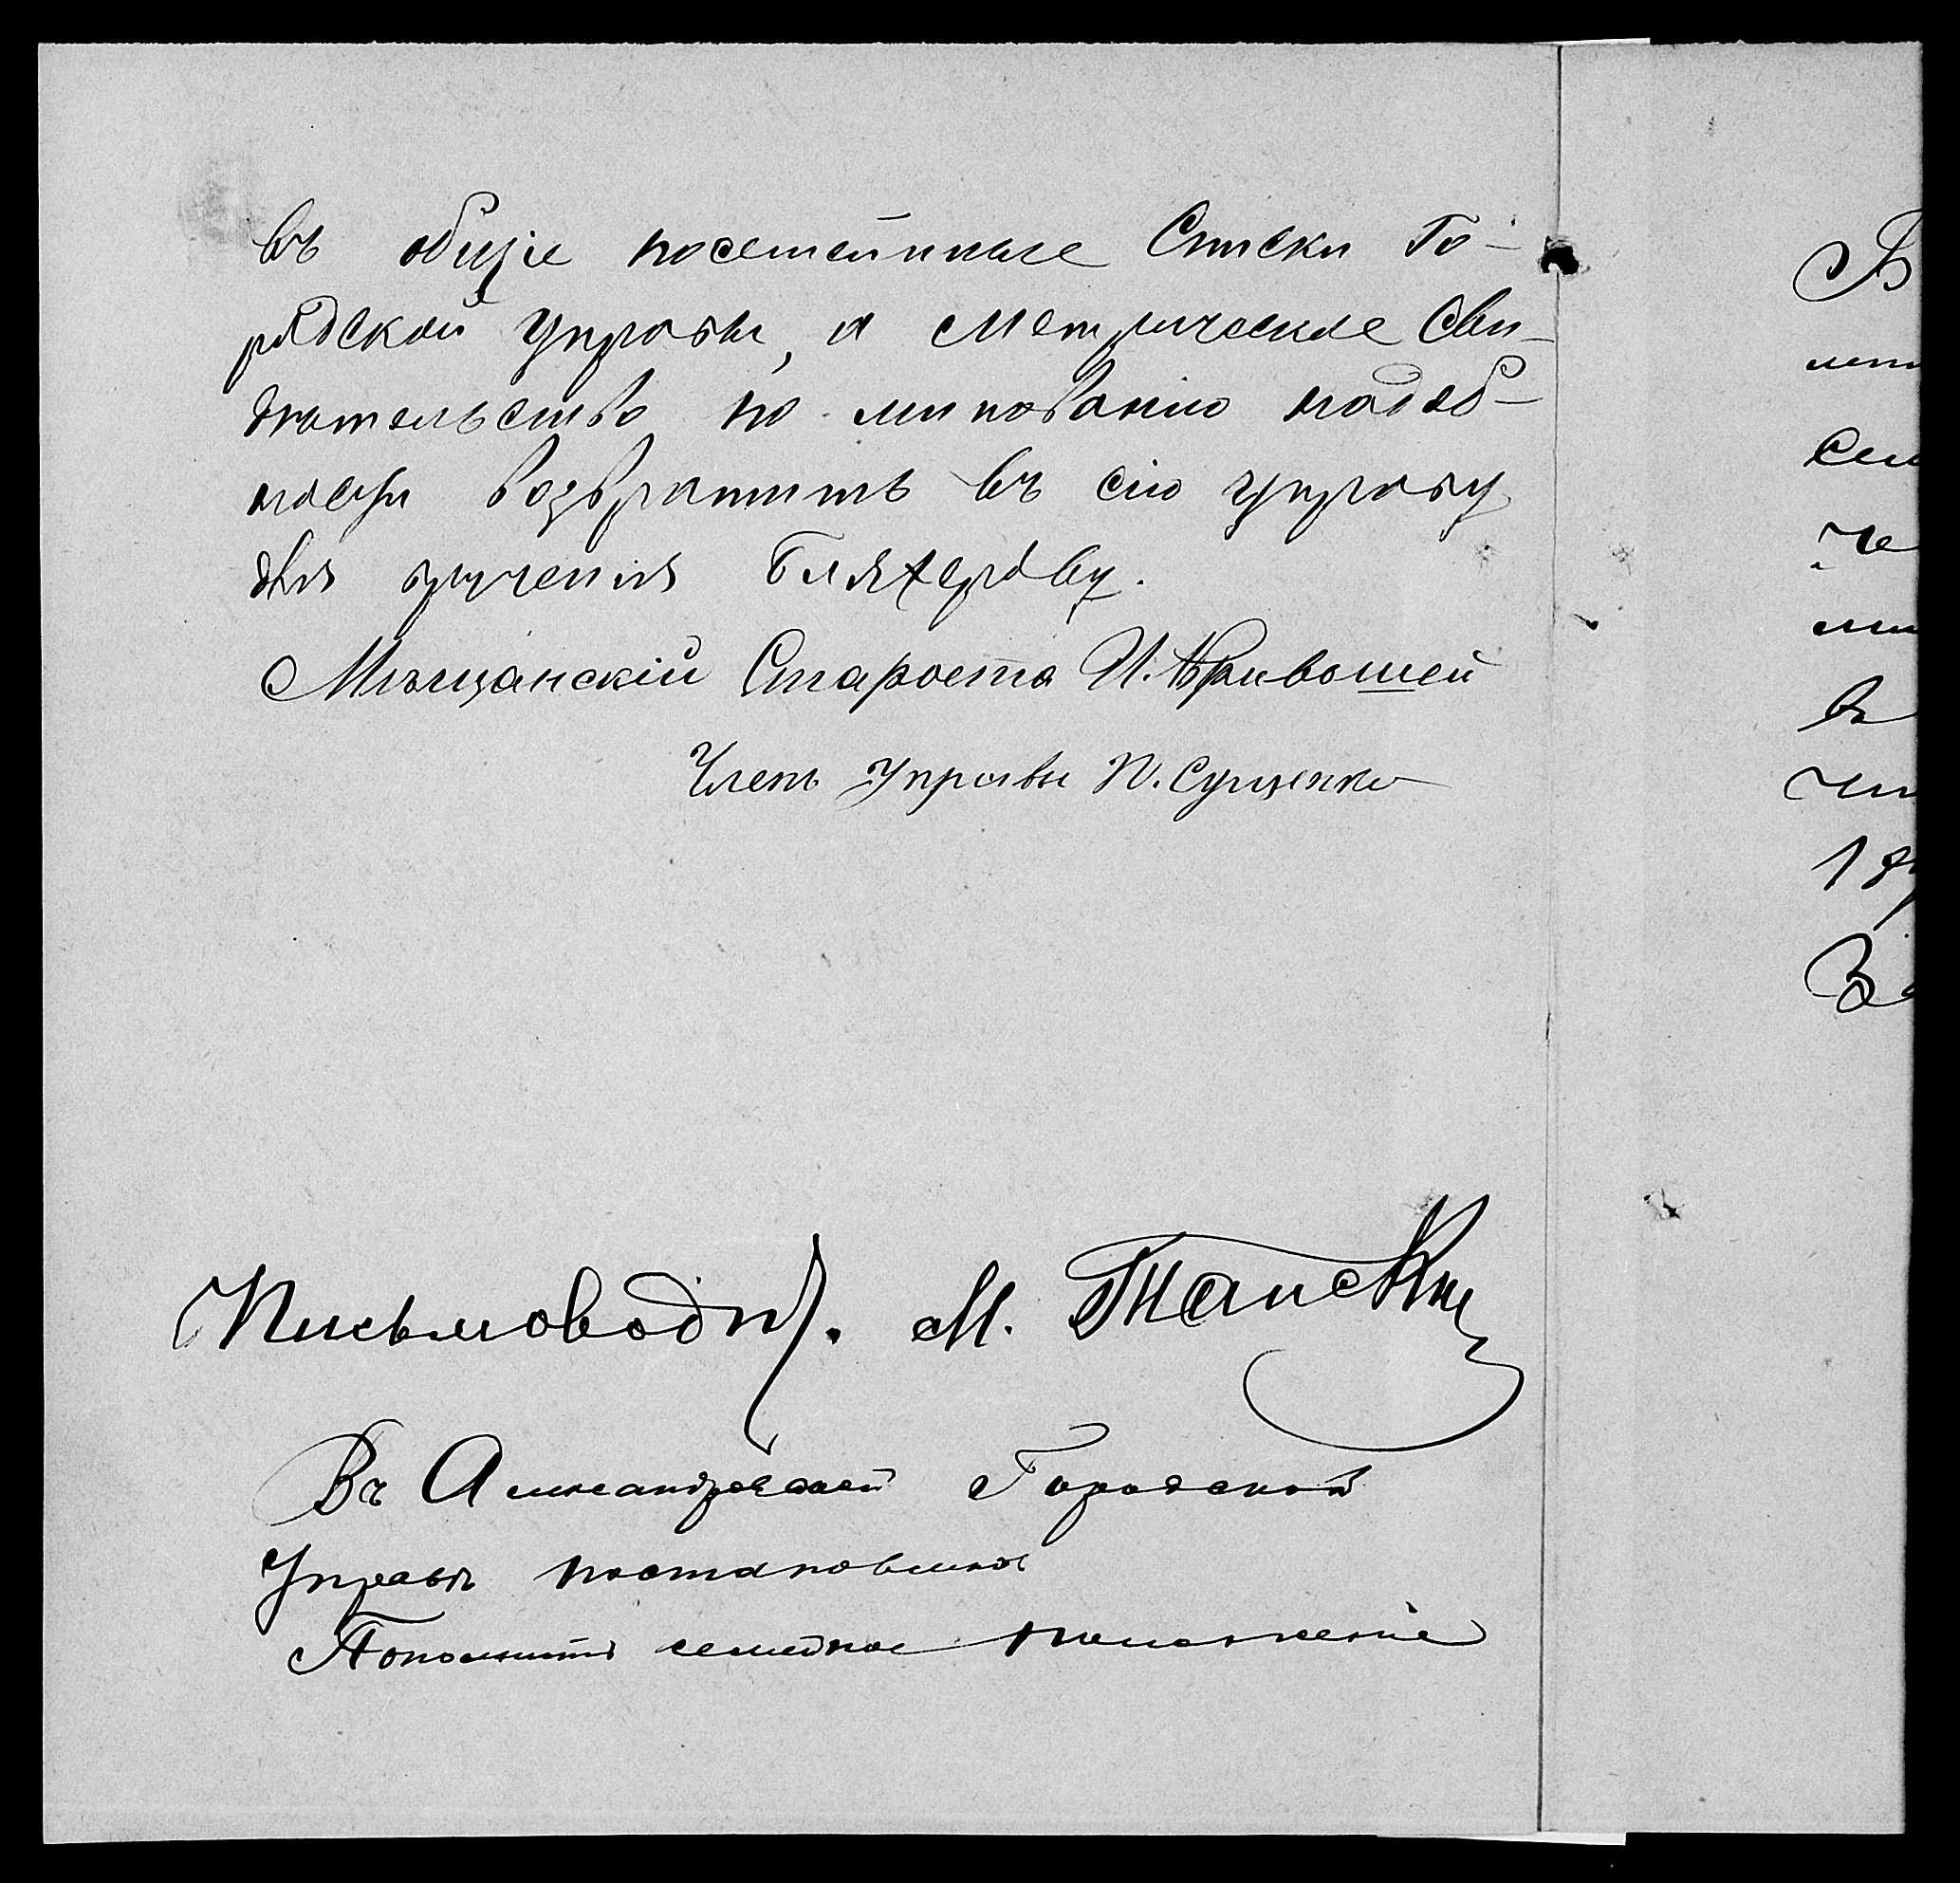 въ общіе посемейные Списки Го-
родской управы, а метрическое Сви-
дѣтельство по минованію надоб-
ности возвратить въ сію управу
для врученія Бляхерову.
Мѣщанскій Староста И. Кривошей
Членъ Управы П. Сущенко
Письмоводит. М.
Въ Александровской Городской
Управѣ постановлено
Пополнить семейное положеніе